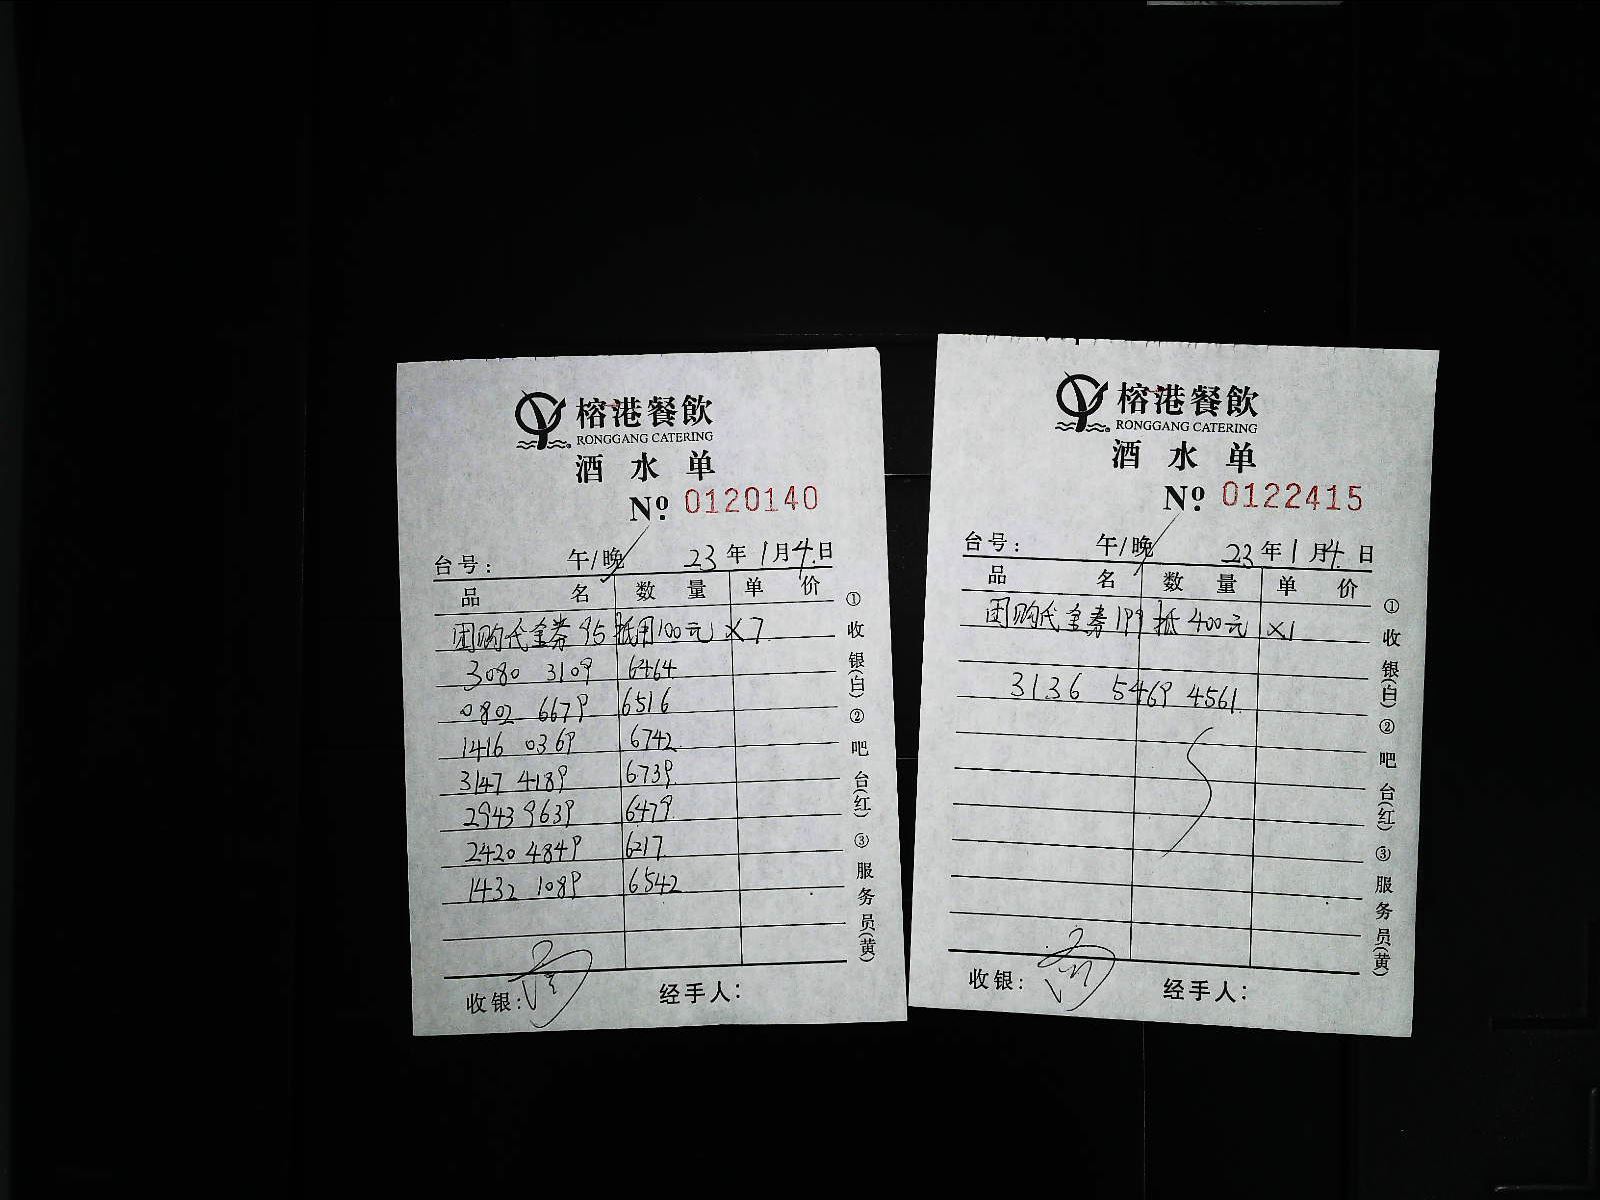 榕港餐飲
RONGGANG CATERING
酒水单
№ 0120140
台号： 午/晚 23年1月4日
品名 数量 单价
团购代金券95抵用100元 ×7
3080 3109 6464
0802 6679 6516
1416 0369 6742
3147 4189 6739
2943 9639 6479
2420 4849 6217
1432 1089 6542
收银： 经手人：
①收银(白) ②吧台(红) ③服务员(黄)
榕港餐飲
RONGGANG CATERING
酒水单
№ 0122415
台号： 午/晚 23年1月4日
品名 数量 单价
团购代金券199抵400元 ×1
3136 5469 4561
收银： 经手人：
①收银(白) ②吧台(红) ③服务员(黄)